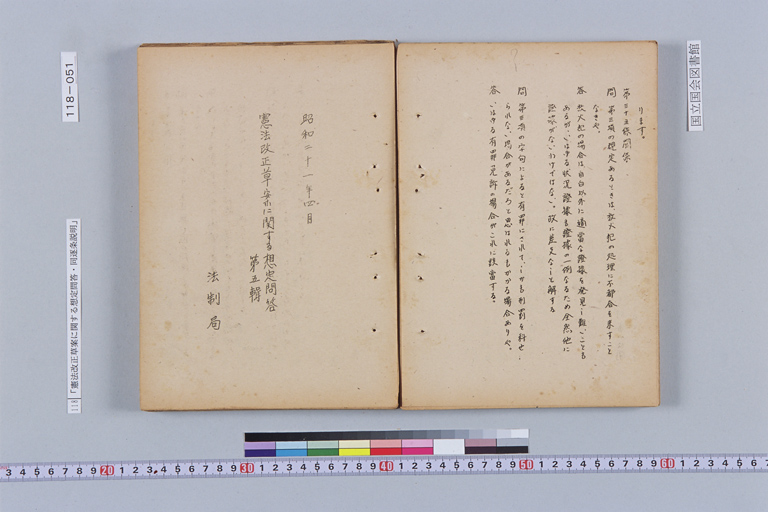 ります。
第三十五條関係
問 第三項の規定あるときは放火犯の処理に不都合を来すこと
なきや。
答 放火犯の場合は自白以外に適当な證據を発見し難いことも
あるが、いはゆる状況證據も證據の一例なるため全然他に
證據がないわけではない。故に差支なしと解する
問 第三項の字句によると有罪にされて、しかも刑罰を科せ
られない場合があるだらうと思はれるもかかる場合ありや。
答 いはゆる有罪免除の場合がこれに該当する。
昭和二十一年四月
憲法改正草案に関する想定問答
第五輯
法制局
118-051
118「憲法改正草案に関する想定問答・同逐条説明」
国立国会図書館
3 4 5 6 7 8 9 20 1 2 3 4 5 6 7 8 9 30 1 2 3 4 5 6 7 8 9 40 1 2 3 4 5 6 7 8 9 50 1 2 3 4 5 6 7 8 9 60 1 2 3 4 5 6 7